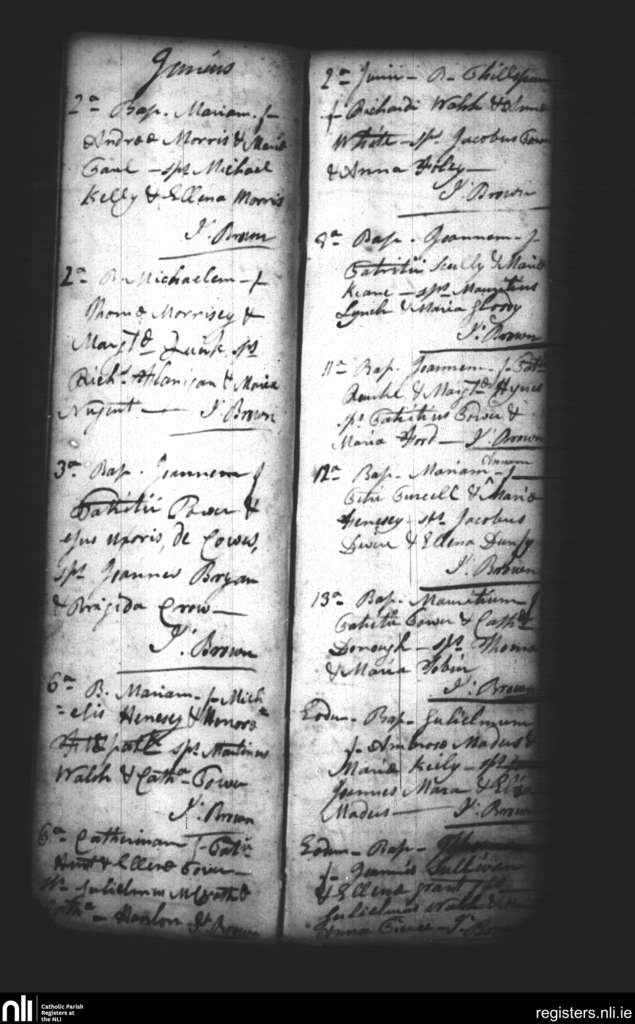 Junius
2a Bap. Mariam - f-
Andreæ Morris & Mariæ
Paul - sps Michael
Kelly & Ellena Morris
Js. Brown
2a B. Michaelem - f-
Thomæ Morrisey &
Margtæ Quirk sps
Richd. Flanigan & Maria
Nugent — Js Brown
3a Bap. Joannem f
Patritii Power &
ejus uxoris, de
sps Joannes Bryan
& Brigida Crow —
Js. Brown
6a B. Mariam - f- Mich
=elis Henesey & Honoræ
sps Martinus
Walsh & Catha. Power
Js. Brown
6a Catherinam f- Patii
& Ellenæ Power —
Gulielmus McGrath &
Catha - Hanlon Js Brown
2a Junii - B -
f- Richardi Walsh & Annæ
White - sps. Jacobus Power
& Anna Foley —
Js. Brown
8a Bap. Joannem - f-
Patritii Scully & Mariæ
Keane - sps Mauritius
Lynch & Maria
Js. Brown
11a Bap. Joannem - f- Patii
& Margtæ Hynes
sps Patritius Power &
Maria Ford — Js. Brown
Annam
12a Bap. Mariam - f-
Petri Purcell & Mariæ
Henesey - sps. Jacobus
& Ellena Dunfy
Js. Brown
13a Bap. Mauritium f
Patritii Power & Cathæ
Donough - sps. Thomas
& Maria Tobin
Js. Brown
Eodm - Bap - Gulielmum
f- Ambrose Madus &
Mariæ Keily - sps
Joannes Mara & Eliza
Madus — Js. Brown
Eodm - Bap -
f- Joannis Sullivan
& Ellenæ Grant sps
Gulielmus Walsh &
Anna Pierce - Js. Brown
nli
Catholic Parish
Registers at
the NLI
registers.nli.ie